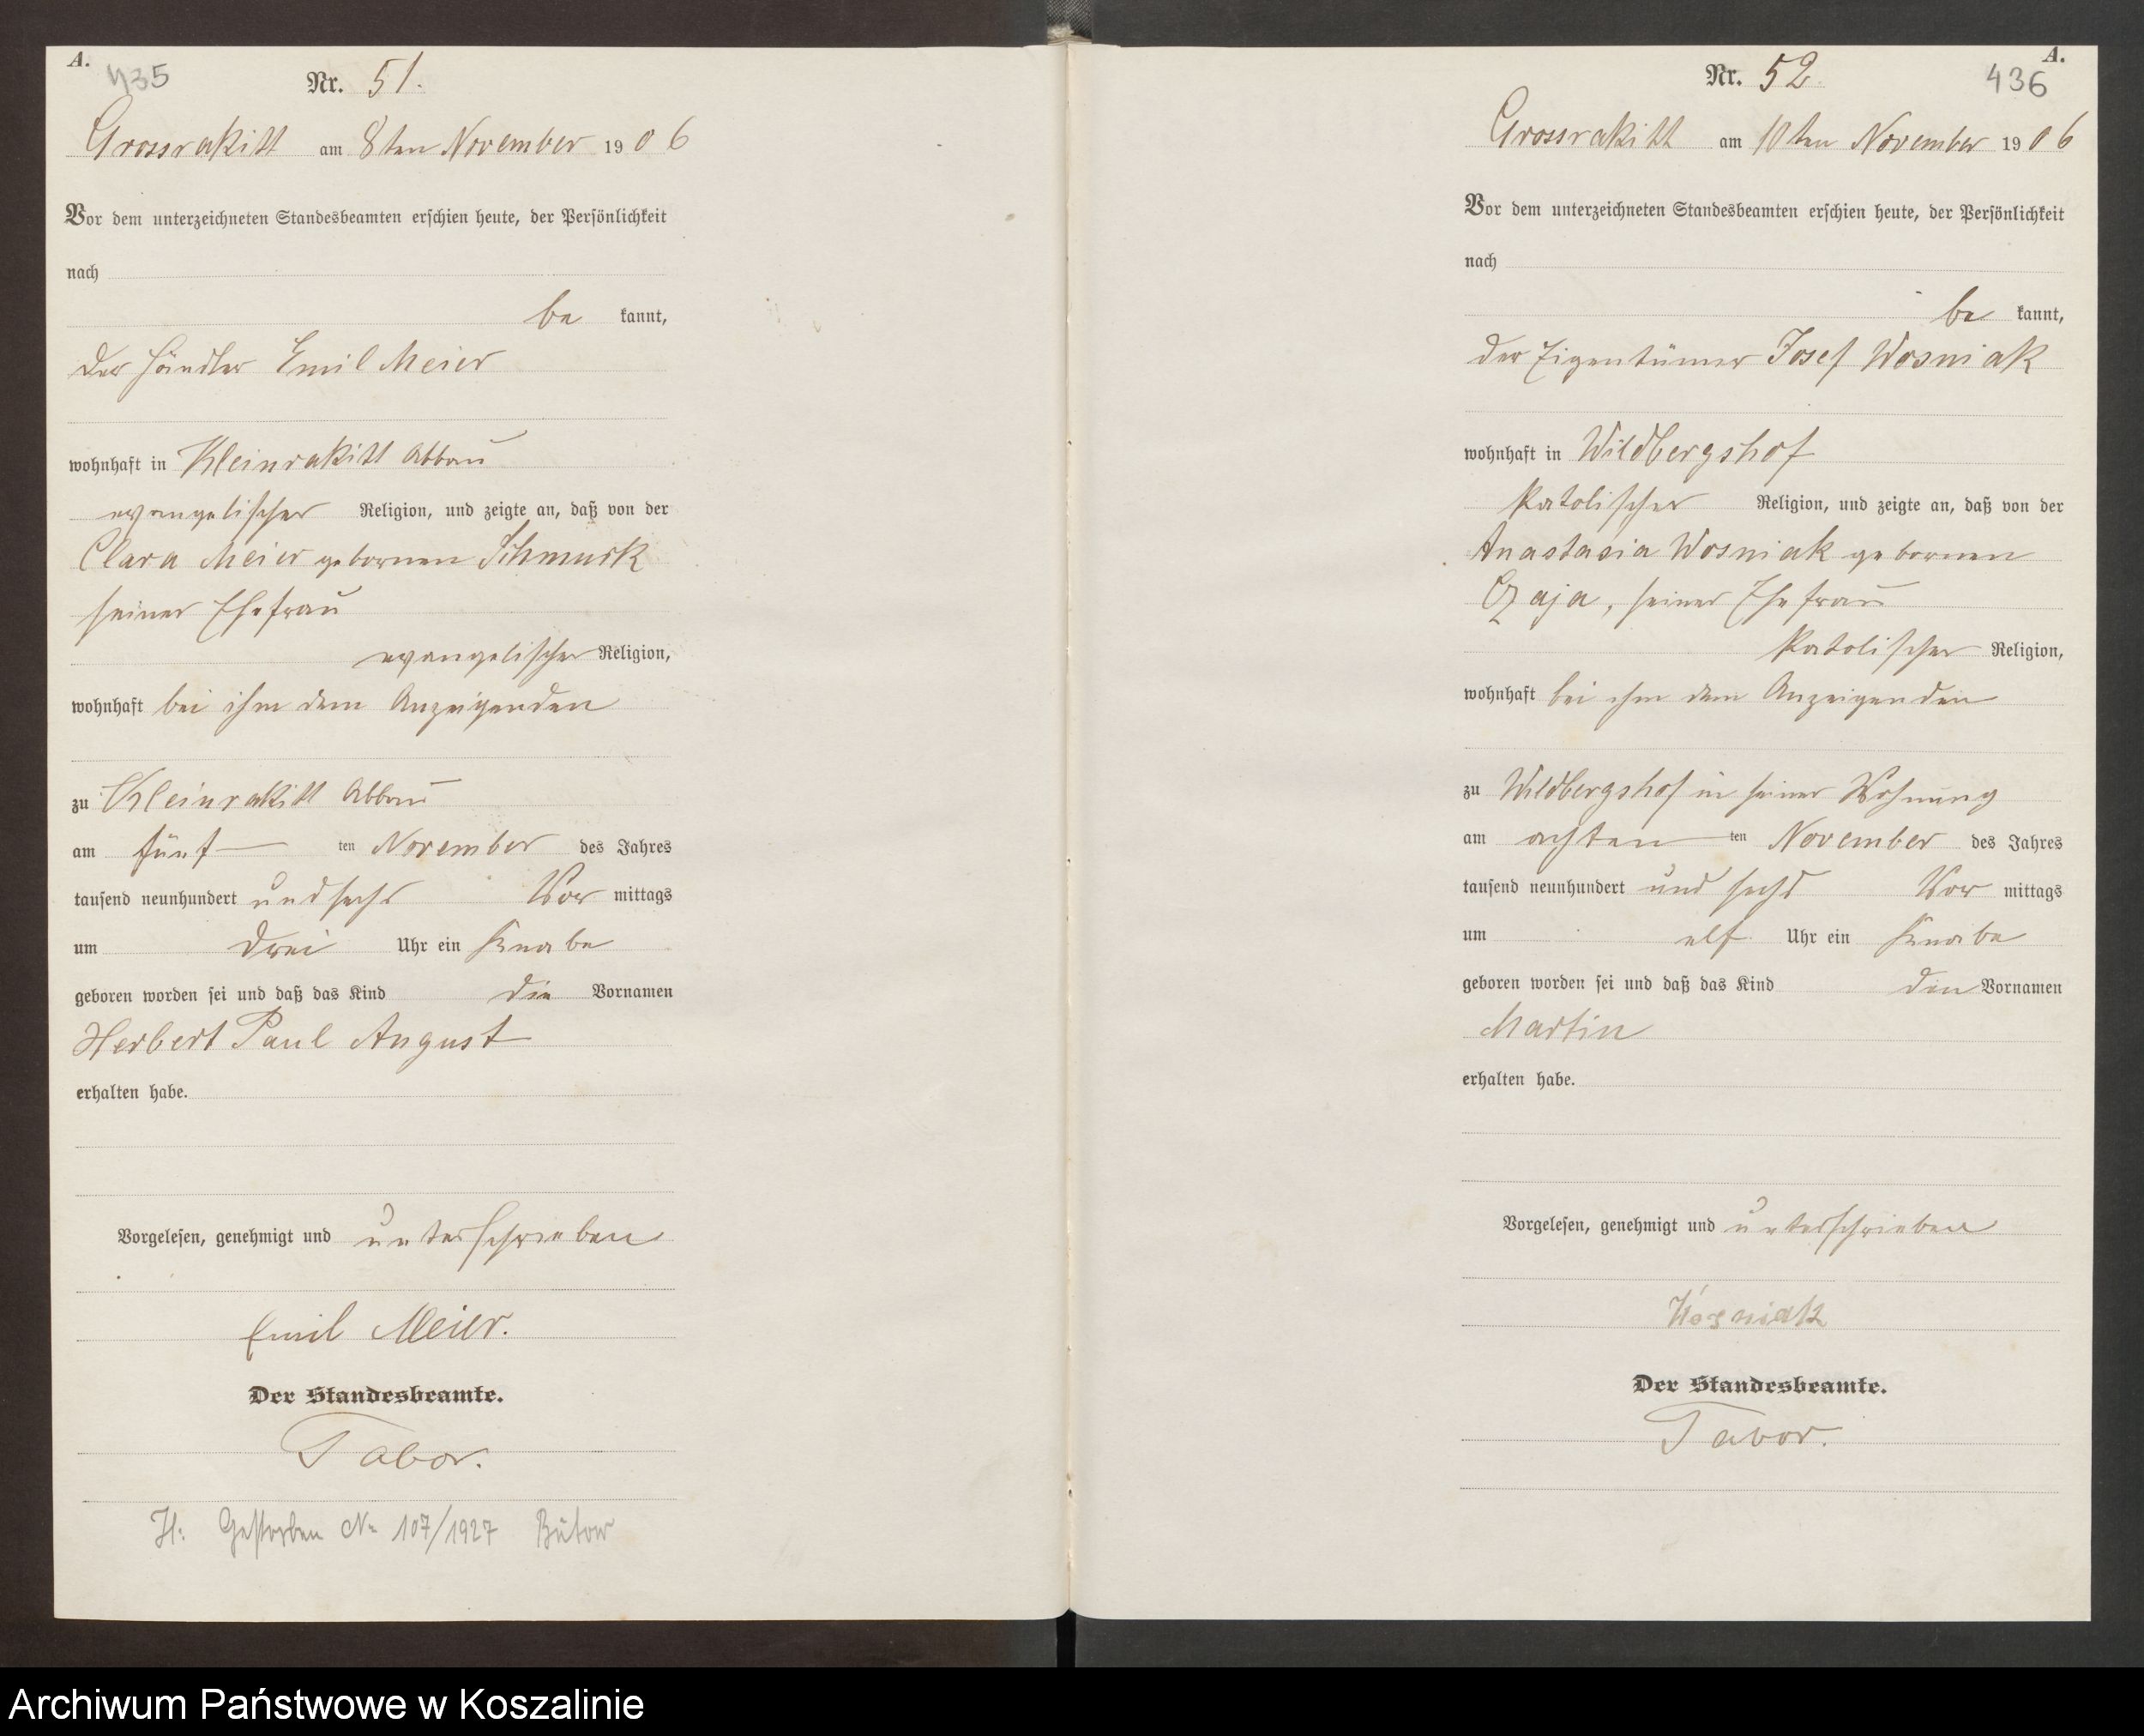 A.
435
Nr. 51.
Grossrakitt am 8ten November 1906
Vor dem unterzeichneten Standesbeamten erschien heute, der Persönlichkeit
nach
be kannt,
der Händler Emil Meier
wohnhaft in Kleinrakitt Abbau
evangelischer Religion, und zeigte an, daß von der
Clara Meier gebornen Schmuck
seiner Ehefrau
evangelischer Religion,
wohnhaft bei ihm dem Anzeigenden
zu Kleinrakitt Abbau
am fünf ten November des Jahres
tausend neunhundert und sechs Vor mittags
um drei Uhr ein Knabe
geboren worden sei und daß das Kind die Vornamen
Herbert Paul August
erhalten habe.
Vorgelesen, genehmigt und unterschrieben
Emil Meier.
Der Standesbeamte.
Tabor.
H: Gestorben No 107/1927 Bütow
A.
436
Nr. 52.
Grossrakitt am 10ten November 1906
Vor dem unterzeichneten Standesbeamten erschien heute, der Persönlichkeit
nach
be kannt,
der Eigentümer Josef Wosniak
wohnhaft in Wildbergshof
katolischer Religion, und zeigte an, daß von der
Anastasia Wosniak gebornen
Czaja, seiner Ehefrau
katolischer Religion,
wohnhaft bei ihm dem Anzeigenden
zu Wildbergshof in seiner Wohnung
am achten ten November des Jahres
tausend neunhundert und sechs Vor mittags
um elf Uhr ein Knabe
geboren worden sei und daß das Kind den Vornamen
Martin
erhalten habe.
Vorgelesen, genehmigt und unterschrieben
Wosniak
Der Standesbeamte.
Tabor.
Archiwum Państwowe w Koszalinie